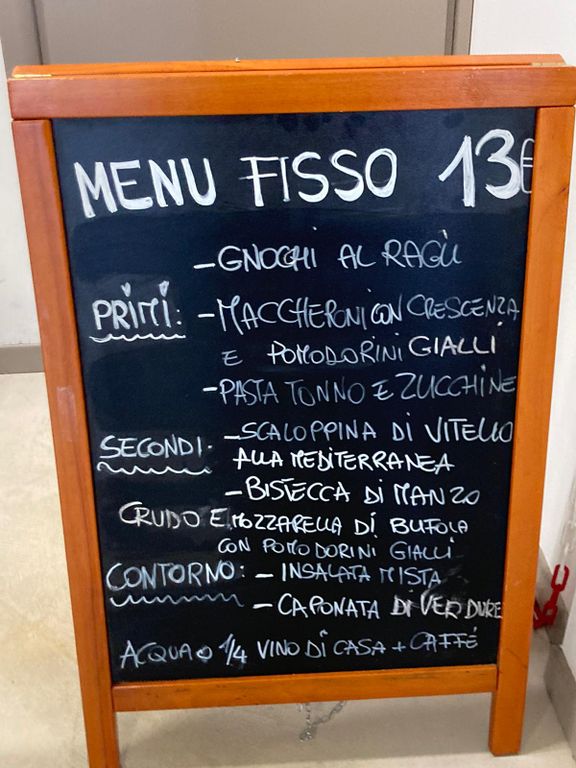 MENU FISSO 13€
- GNOCHI AL RAGÙ
PRIMI: - MACCHERONI CON CRESCENZA
E POMODORINI GIALLI
- PASTA TONNO E ZUCCHINE
SECONDI: - SCALOPPINA DI VITELLO
ALLA MEDITERRANEA
- BISTECCA DI MANZO
CRUDO E MOZZARELLA DI BUFOLA
CON POMODORINI GIALLI
CONTORNO: - INSALATA MISTA
- CAPONATA DI VERDURE
ACQUA o 1/4 VINO DI CASA + CAFFÉ